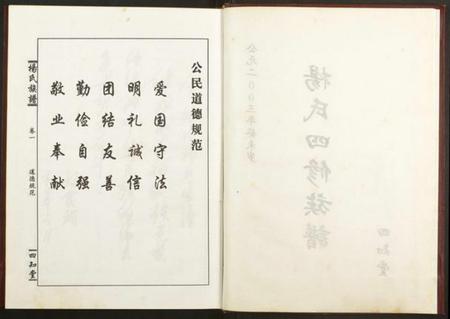 公民道德规范
爱国守法
明礼诚信
团结友善
勤俭自强
敬业奉献
楊氏族譜
卷一
道德规范
四知堂
公元二〇〇三年癸未岁
楊氏四修族譜
四知堂